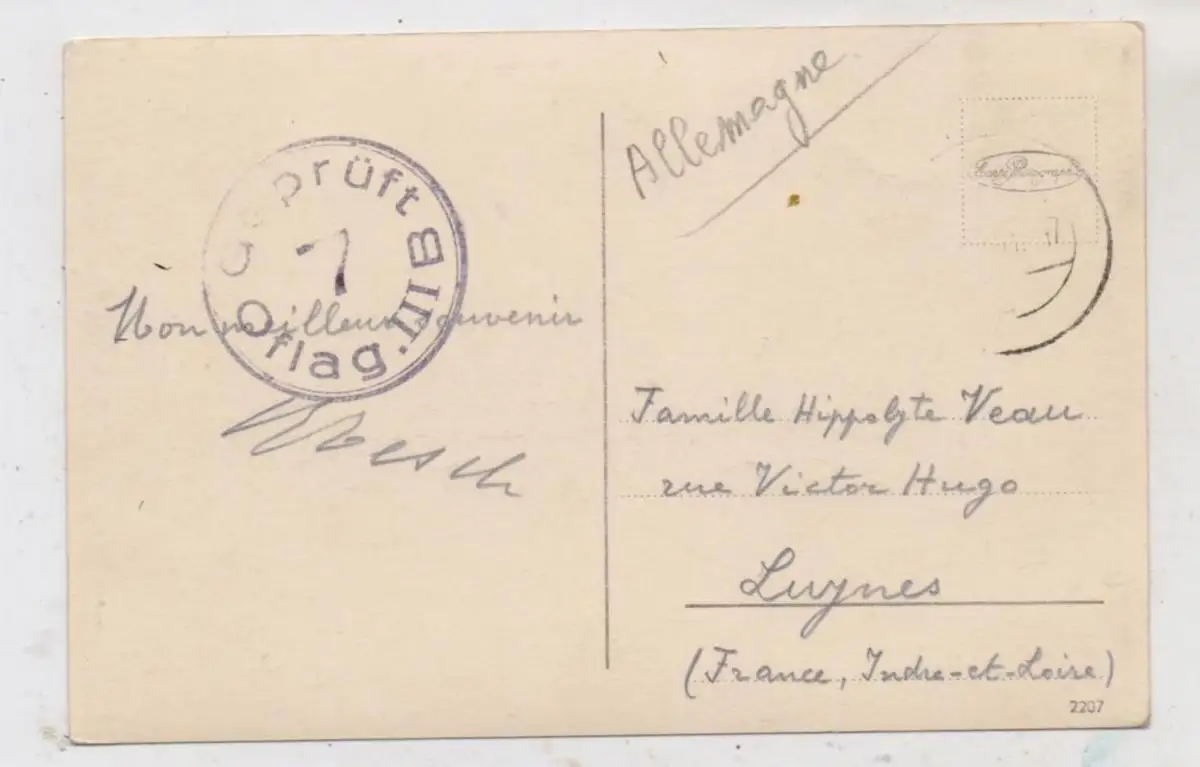 Allemagne
Geprüft
7
Oflag. III B
Mon meilleur souvenir
Famille Hippolyte Veau
rue Victor Hugo
Luynes
(France, Indre-et-Loire)
2207